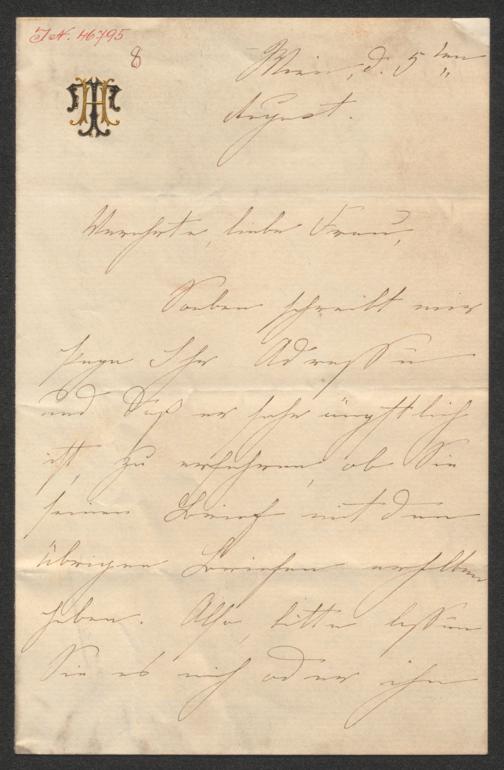 I.N. 46795
8
TH
Wien, d. 5ten
August.
Verehrte, liebe Frau,
Soeben schreibt mir
Ihr Adresse
und daß er sehr ängstlich
ist, zu erfahren, ob Sie
seinen Brief mit den
übrigen Briefen erhalten
haben. Also, bitte lassen
Sie es mich oder ihn